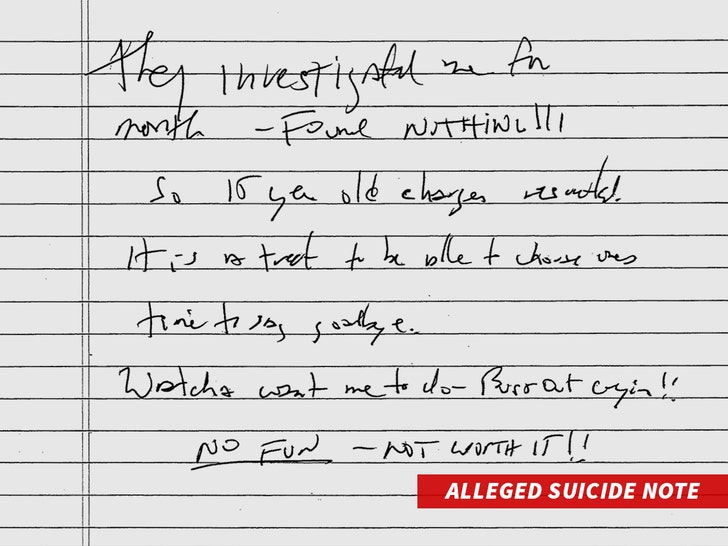 They investigated me for
month - Found NOTHING!!!
So 15 year old charges resulted!
It is a treat to be able to choose ones
time to say goodbye.
Watcha want me to do - Burst out cryin!!
NO FUN - NOT WORTH IT!!
ALLEGED SUICIDE NOTE